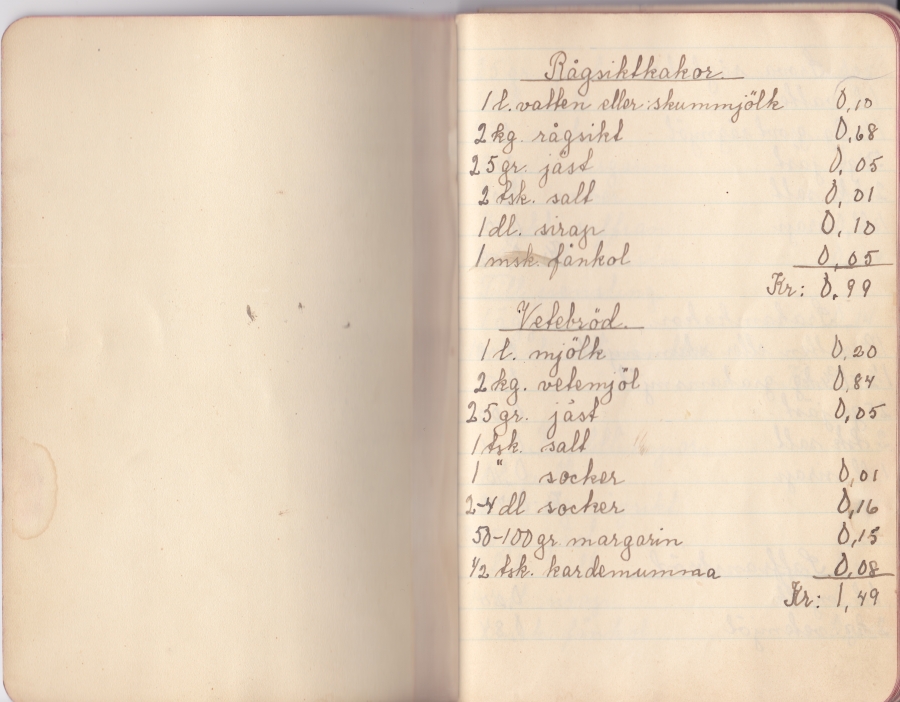 Rågsiktkakor.
1 l. vatten eller skummjölk 0,10
2 kg. rågsikt 0,68
25 gr. jäst 0,05
2 tsk. salt 0,01
1 dl. sirap 0,10
1 msk. fänkol 0,05
Kr: 0,99
Vetebröd.
1 l. mjölk 0,20
2 kg. vetemjöl 0,84
25 gr. jäst 0,05
1 tsk. salt
1 " socker 0,01
2-4 dl socker 0,16
50-100 gr margarin 0,15
1/2 tsk. kardemumma 0,08
Kr: 1,49